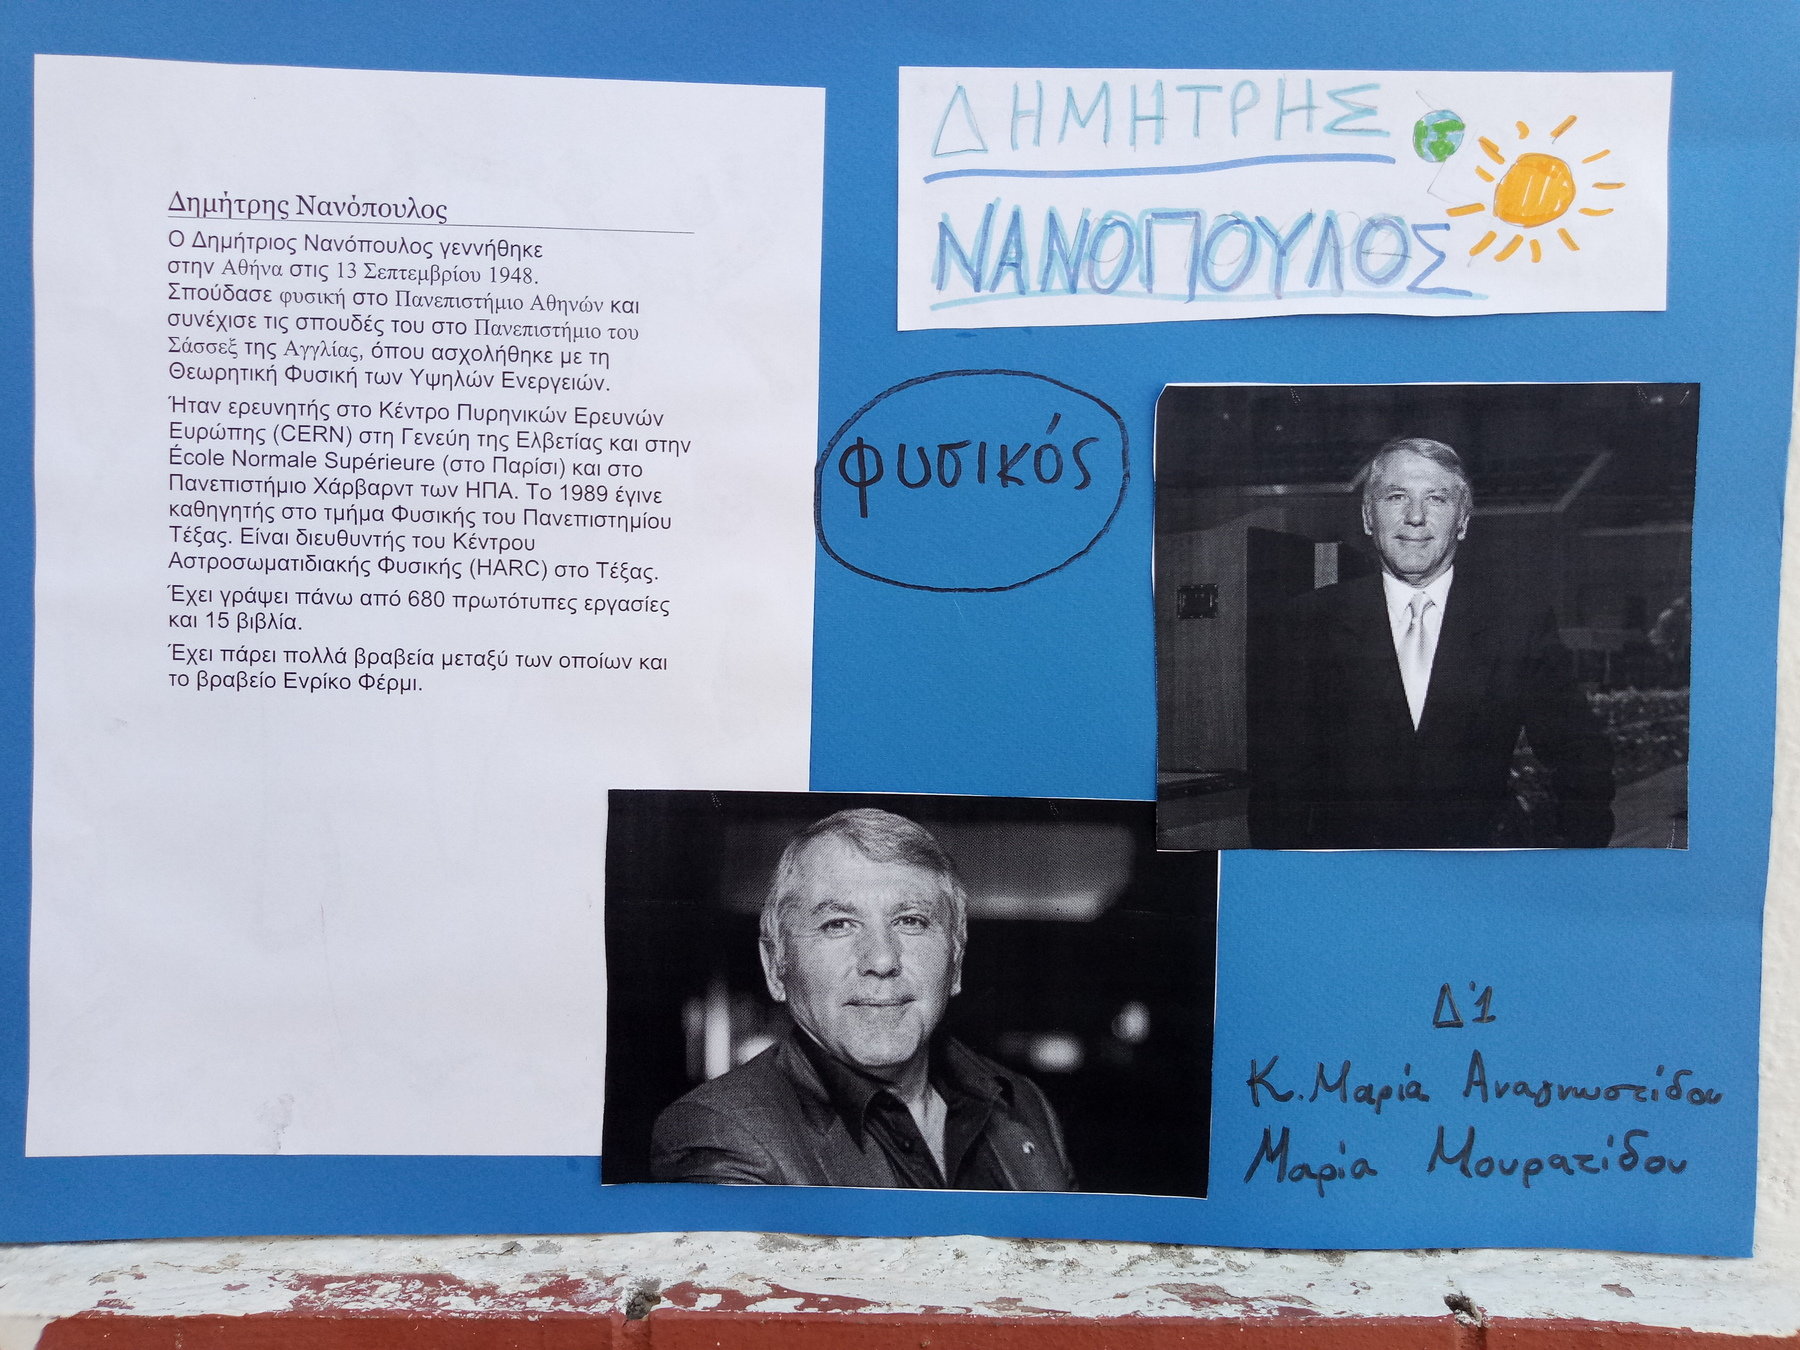 Δημήτρης Νανόπουλος
Ο Δημήτριος Νανόπουλος γεννήθηκε
στην Αθήνα στις 13 Σεπτεμβρίου 1948.
Σπούδασε φυσική στο Πανεπιστήμιο Αθηνών και
συνέχισε τις σπουδές του στο Πανεπιστήμιο του
Σάσσεξ της Αγγλίας, όπου ασχολήθηκε με τη
Θεωρητική Φυσική των Υψηλών Ενεργειών.
Ήταν ερευνητής στο Κέντρο Πυρηνικών Ερευνών
Ευρώπης (CERN) στη Γενεύη της Ελβετίας και στην
École Normale Supérieure (στο Παρίσι) και στο
Πανεπιστήμιο Χάρβαρντ των ΗΠΑ. Το 1989 έγινε
καθηγητής στο τμήμα Φυσικής του Πανεπιστημίου
Τέξας. Είναι διευθυντής του Κέντρου
Αστροσωματιδιακής Φυσικής (HARC) στο Τέξας.
Έχει γράψει πάνω από 680 πρωτότυπες εργασίες
και 15 βιβλία.
Έχει πάρει πολλά βραβεία μεταξύ των οποίων και
το βραβείο Ενρίκο Φέρμι.
ΔΗΜΗΤΡΗΣ
ΝΑΝΟΠΟΥΛΟΣ
φυσικός
Δ'1
Κ. Μαρία Αναγνωστίδου
Μαρία Μουρατίδου